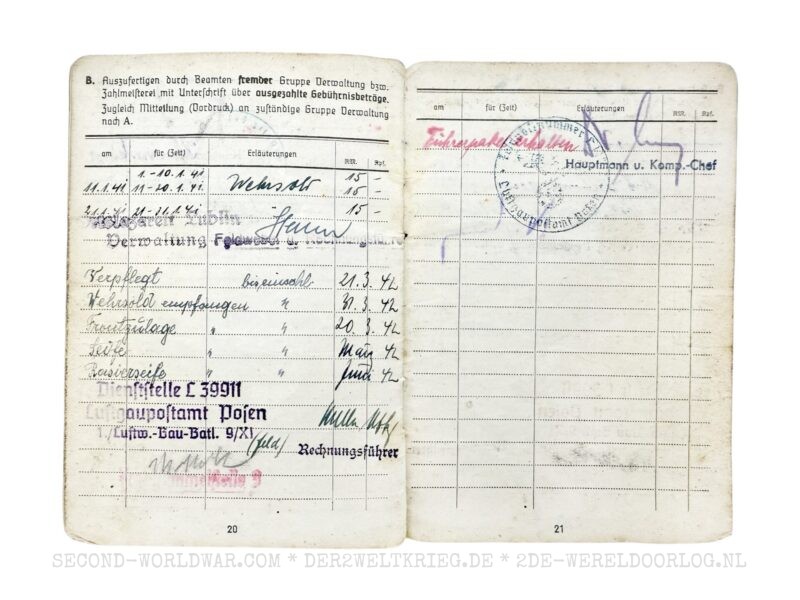 B. Auszufertigen durch Beamten fremder Gruppe Verwaltung bzw.
Zahlmeisterei mit Unterschrift über ausgezahlte Gebührnisbeträge.
Zugleich Mitteilung (Vordruck) an zuständige Gruppe Verwaltung
nach A.
am für (Zeit) Erläuterungen RM. Rpf.
1.-10.1.41 15 -
11.1.41 11-20.1.41 Wehrsold 15 -
21.1.41 21-31.1.41 15 -
Lublin
Verwaltung Feldwebel u. Rechnungsführer
Verpflegt bis einschl. 21.3.42
Wehrsold empfangen " 31.3.42
Frontzulage " " 20.3.42
Seife " " März 42
Rasierseife " " Juni 42
Dienststelle L 39911
Luftgaupostamt Posen
1./Luftw.-Bau-Batl. 9/XI (feld)
Rechnungsführer
20
am für (Zeit) Erläuterungen RM. Rpf.
Führerpaket erhalten
Hauptmann u. Komp.-Chef
Luftgaupostamt Posen
21
SECOND-WORLDWAR.COM * DER2WELTKRIEG.DE * 2DE-WERELDOORLOG.NL